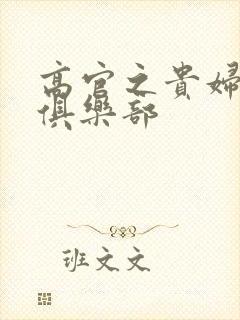 高官之貴婦
俱樂部
班文文